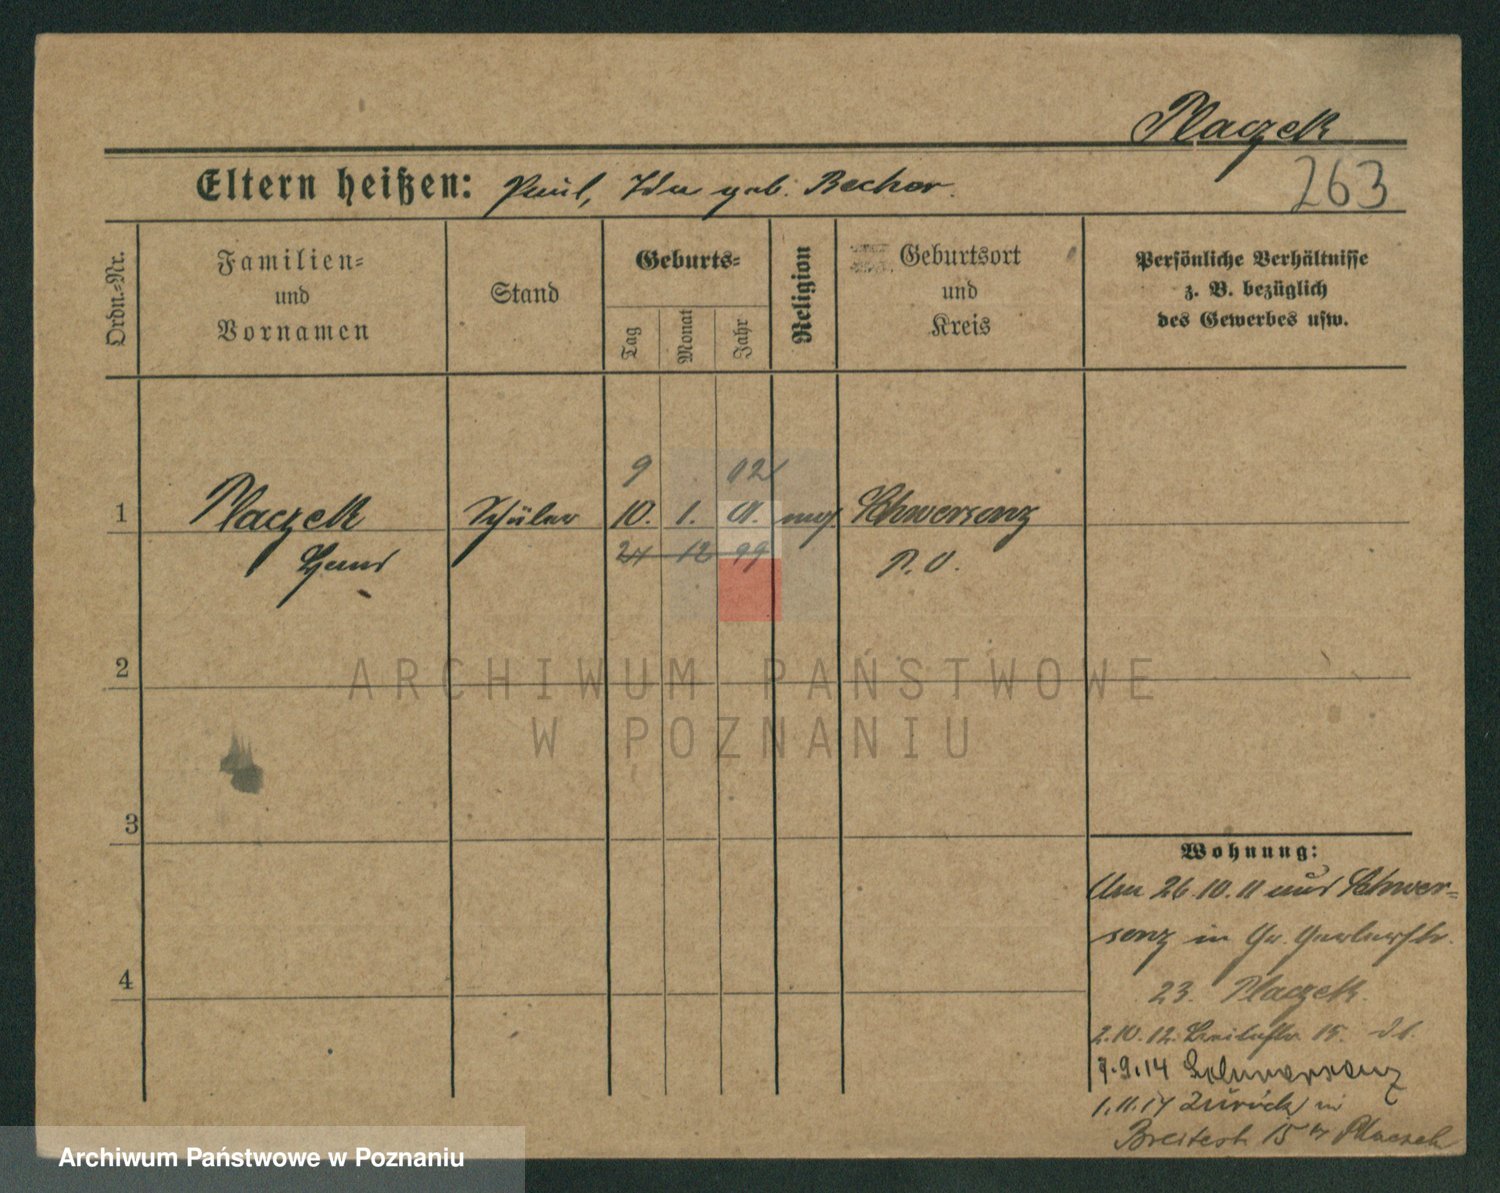 Placzek
Eltern heißen: Paul, Ida geb. Becher.
263
Ordn.-Nr.
Familien-
und
Vornamen
Stand
Geburts-
Tag
Monat
Jahr
Religion
Geburtsort
und
Kreis
Persönliche Verhältnisse
z. B. bezüglich
des Gewerbes usw.
9 02
1 Placzek Schüler 10. 1. 01. mos. Schwersenz
Hans 24 12 99 P. O.
2
ARCHIWUM PAŃSTWOWE
W POZNANIU
3
4
Wohnung:
Am 26.10.11 aus Schwer-
senz in Gr. Gerberstr.
23. Placzek.
2.10.12. Breitestr. 15.
9.9.14 Schwersenz
1.11.14 Zurück in
Breitestr. 15 Placzek
Archiwum Państwowe w Poznaniu